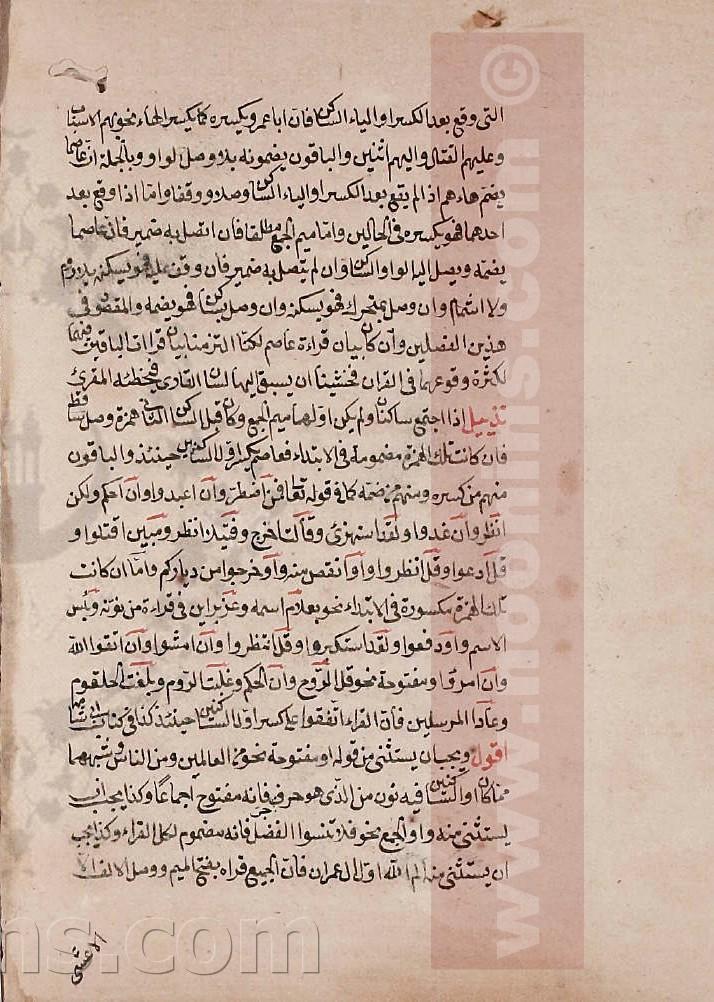 التى وقع بعد الكسرا والياء الساكن فان ابا عمرو يكسره كما يكسر الهاء نحو بهم الاسباب
وعليهم القتال واليهم اثنين والباقون يضمونه بلا وصل لواو وبالجملة ان عاصما
يضم هاء هم اذا لم يقع بعد الكسرا والياء الساكن وصلا ووقفا واما اذا وقع بعد
احدهما فهو يكسره فى الحالين واما ميم الجمع مطلقا فان اتصل به ضمير فان عاصما
يضمه ويصل اليه الواو الساكن وان لم يتصل به ضمير فان وقف عليه فهو يسكنه بلا روم
ولا اشمام وان وصل بمتحرك فهو يسكنه وان وصل بساكن فهو يضمه والمقصود فى
هذين الفصلين وان كان بيان قراءة عاصم لكنا التزمنا بيان قراات الباقين ضمنا
لكثرة وقوعهما فى القران فخشينا ان يسبق اليهما لسان القارى فيخطئه المقرئ
تذييل اذا اجتمع ساكنان ولم يكن اولهما ميم الجمع وكان قبل الساكن الثانى همزة وصل ساقط
فان كانت تلك الهمزة مضمومة فى الابتداء فعاصم يكسر اول الساكنين حينئذ والباقون
منهم من كسره ومنهم من ضمه كما فى قوله تعا فمن اضطر وان اعبدوا وان احكم ولكن
انظر وان غدوا ولقد استهزئ وقالت اخرج وفتيلا انظر ومبين اقتلوا و
قل ادعوا وقل انظروا واو انقص منه واو اخرجوا من دياركم واما ان كانت
تلك الهمزة مكسورة فى الابتداء نحو بغلام اسمه وعزير ابن فى قراءة من نونه وبئس
الاسم واو ادفعوا ولقد استكبروا وقل انتظروا وان امشوا وان اتقوا الله
وان امرؤ او مفتوحة نحو قل الروح وان الحكم وغلبت الروم وبلغت الحلقوم
وعادا المرسلين فان القراء اتفقوا على كسر اول الساكنين حينئذ كذا فى كتاب
اقول ويجب ان يستثنى من قوله او مفتوحة نحو من العالمين ومن الناس وشبههما
مما كان اول الساكنين فيه نون من الذى هو حرف جر فانه مفتوح اجماعا وكذا يجب ان
يستثنى منه واو الجمع نحو فلا تنسوا الفضل فانه مضموم لكل القراء وكذا يجب
ان يستثنى منه الم الله اول ال عمران فان الجميع قراه بفتح الميم ووصل الالف الا
الاعشى
www.noorlms.com
©
ms.com